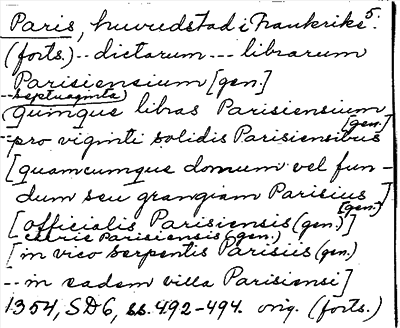 Paris, huvudstad i Frankrike 5.
(forts.) -- dictarum --- librarum
Parisiensium [gen.]
-- septuaginta
quinque libras Parisiensium
[gen.]
-- pro viginti solidis Parisiensibus
[quamcumque domum vel fun-
dum seu grangiam Parisius]
[gen.]
[officialis Parisiensis (gen.)]
curie Parisiensis (gen.)
[in vico serpentis Parisius (gen.)
-- in eadem villa Parisiensi]
1354, SD6, ss. 492-494. orig. (forts.)